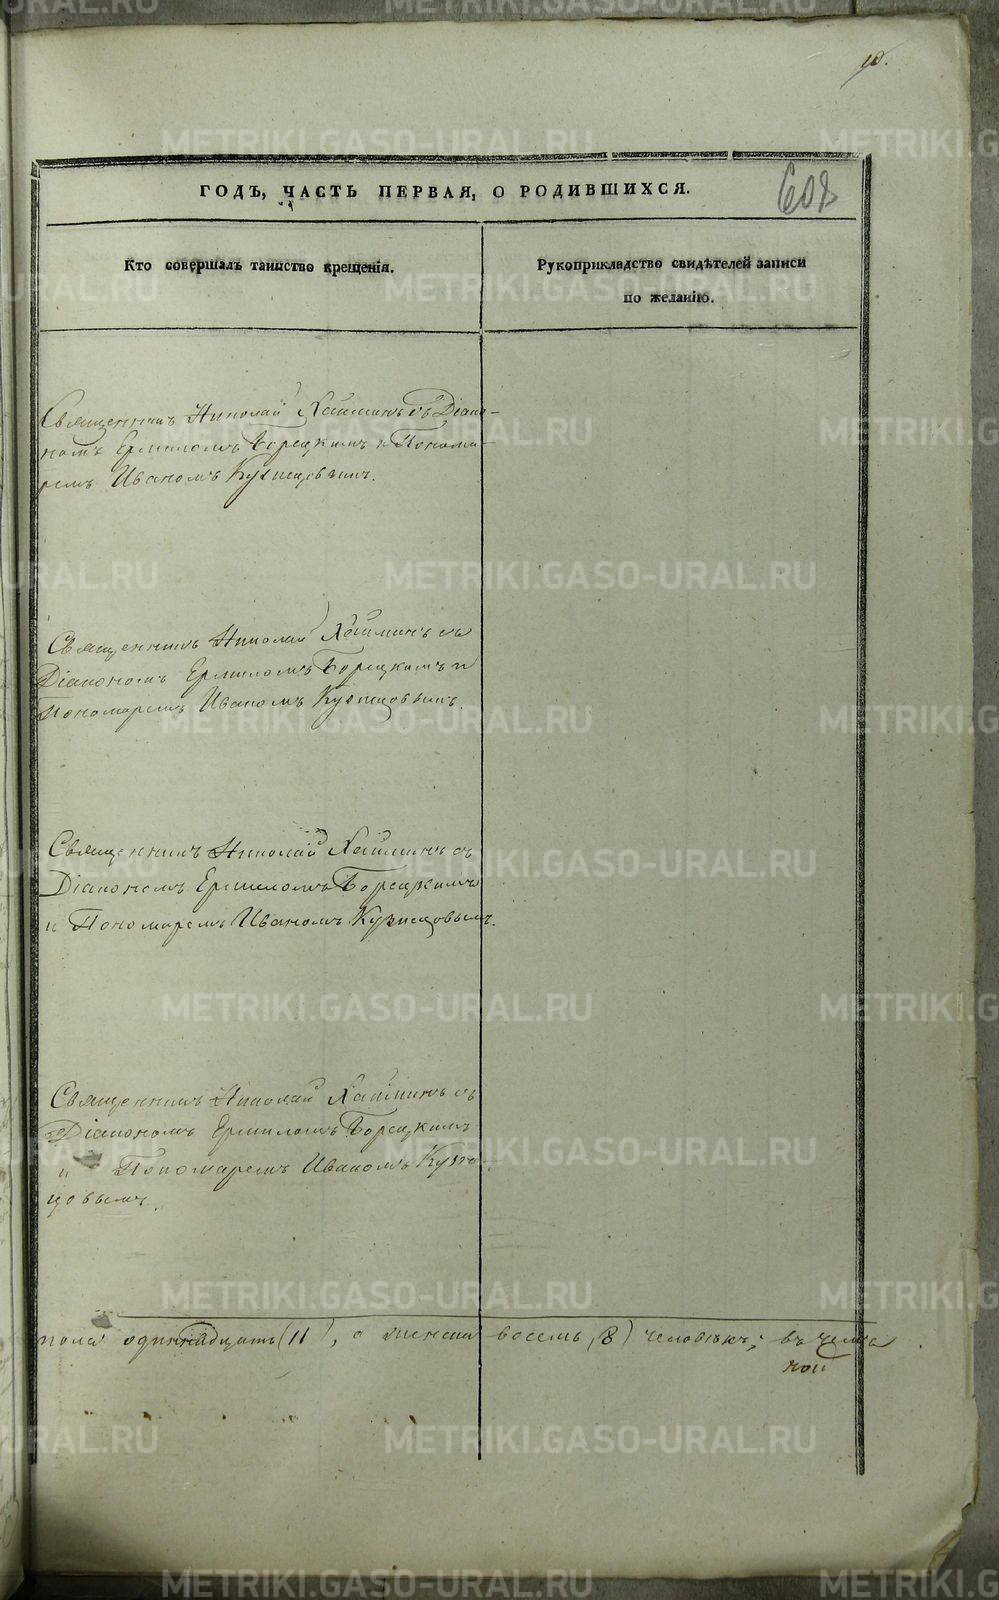 10.
ГОДЪ, ЧАСТЬ ПЕРВАЯ, О РОДИВШИХСЯ.
608
Кто совершалъ таинство крещенія.
Рукоприкладство свидѣтелей записи
по желанію.
Священникъ Николай Хайминъ съ Діако-
номъ Ермиломъ Борецкимъ и Понома-
ремъ Иваномъ Кузнецовымъ.
Священникъ Николай Хайминъ съ
Діакономъ Ермиломъ Борецкимъ и
Пономаремъ Иваномъ Кузнецовымъ.
Священникъ Николай Хайминъ съ
Діакономъ Ермиломъ Борецкимъ
и Пономаремъ Иваномъ Кузнецовымъ.
Священникъ Николай Хайминъ съ
Діакономъ Ермиломъ Борецкимъ
и Пономаремъ Иваномъ Кузне-
цовымъ.
пола одиннадцать (11), а женска восемь (8) человѣкъ; въ чемъ
METRIKI.GASO-URAL.RU